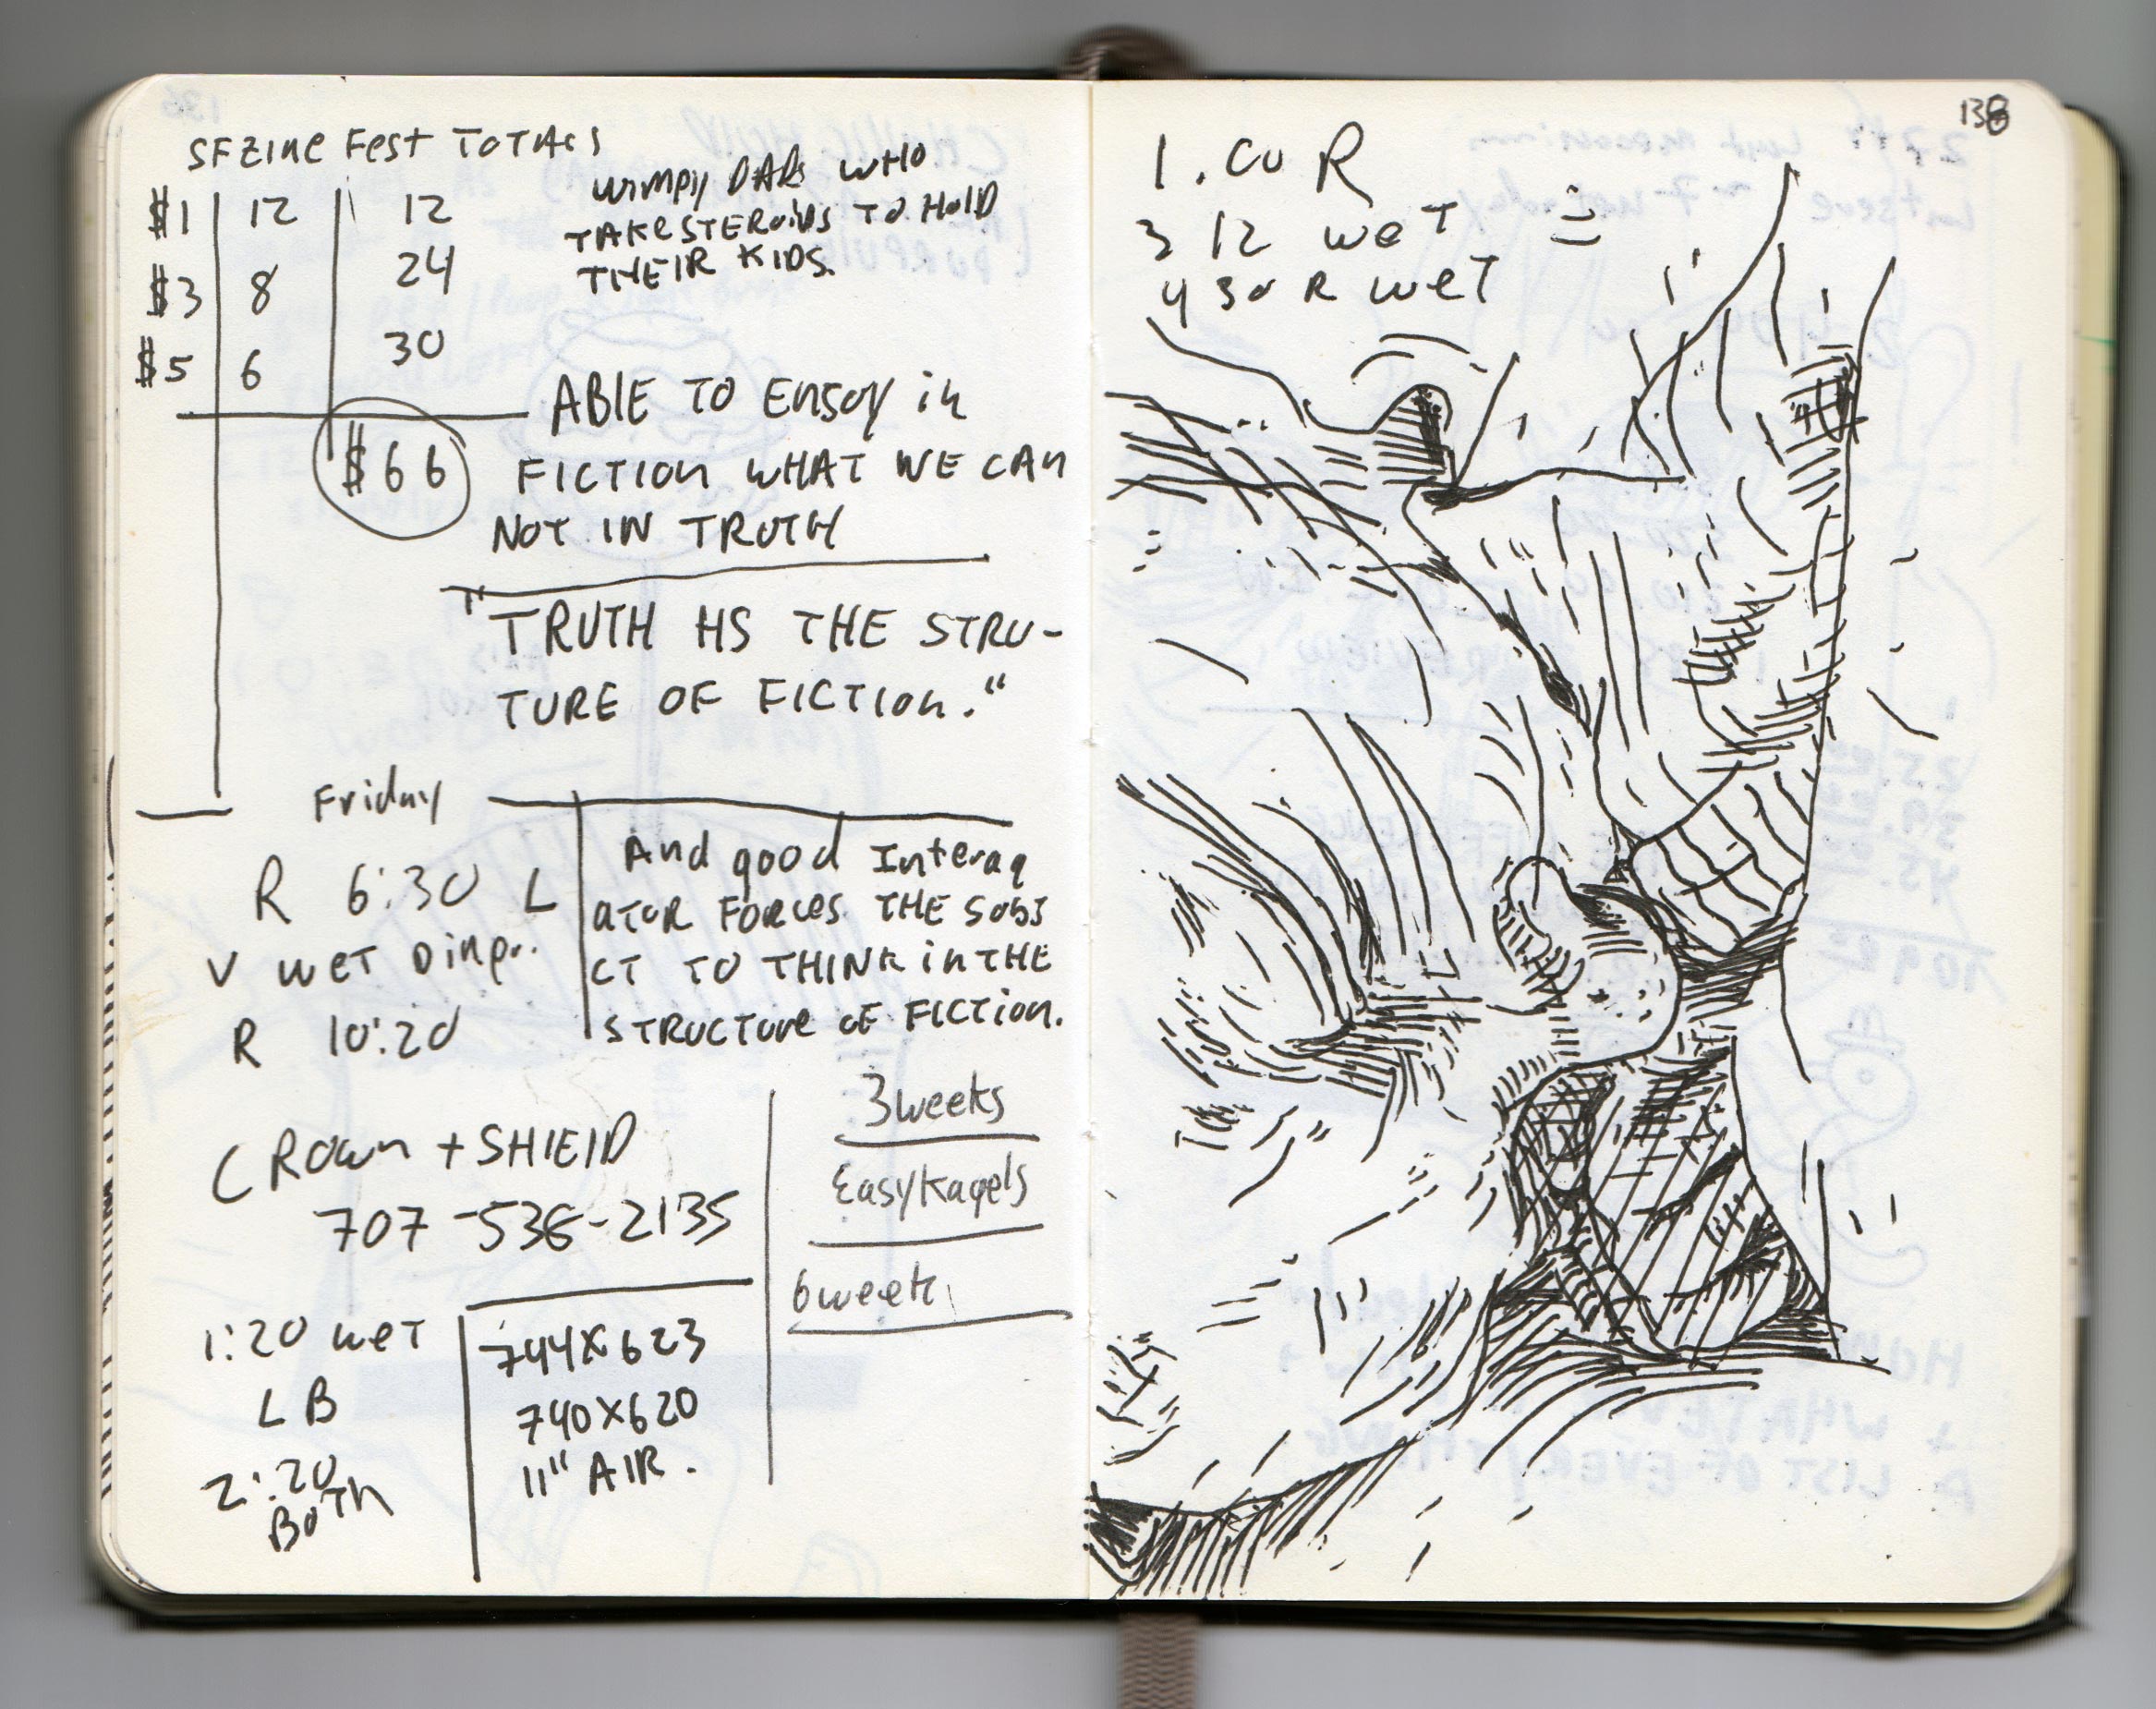 SF ZINE FEST TOTALS
$1 12 12
$3 8 24
$5 6 30
$66
WIMPY DADS WHO
TAKE STEROIDS TO HOLD
THEIR KIDS.
ABLE TO ENJOY IN
FICTION WHAT WE CAN
NOT IN TRUTH
"TRUTH HS THE STRU-
TURE OF FICTION."
Friday
R 6:30 L
V WET
R 10:20
And good Interag
ATOR FORCES THE SUBJ
CT TO THINK IN THE
STRUCTURE OF FICTION.
CROWN + SHIELD
707-536-2135
3 weeks
Easy Kagels
6 week
1:20 WET
LB
2:20
BOTH
744X623
740X620
11" AIR.
138
1. 00 R
3 12 WET
4 30 R WET